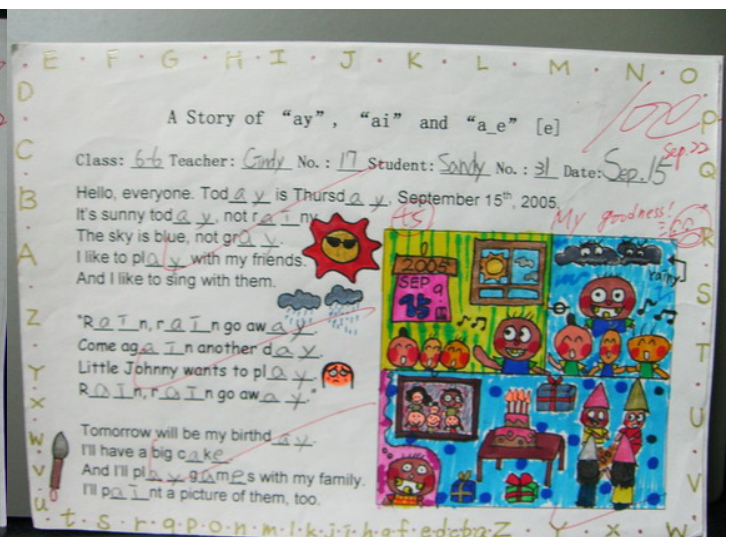 E F G H I J K L M N O
D
C
B
A
Z
Y
X
W
V
u
t s r q p o n m l k j i h g f e d c b a Z Y X W
P
Q
R
S
T
U
V
A Story of "ay", "ai" and "a_e" [e]
100
Sep.22
Class: 6-6 Teacher: Cindy No.: 17 Student: Sandy No.: 31 Date: Sep.15
Hello, everyone. Today is Thursday, September 15th, 2005.
It's sunny today, not rainy.
The sky is blue, not gray.
I like to play with my friends.
And I like to sing with them.
"Rain, rain go away.
Come again another day.
Little Johnny wants to play.
Rain, rain go away."
Tomorrow will be my birthday.
I'll have a big cake.
And I'll play games with my family.
I'll paint a picture of them, too.
+5
My goodness!
2005
SEP
15
rainy